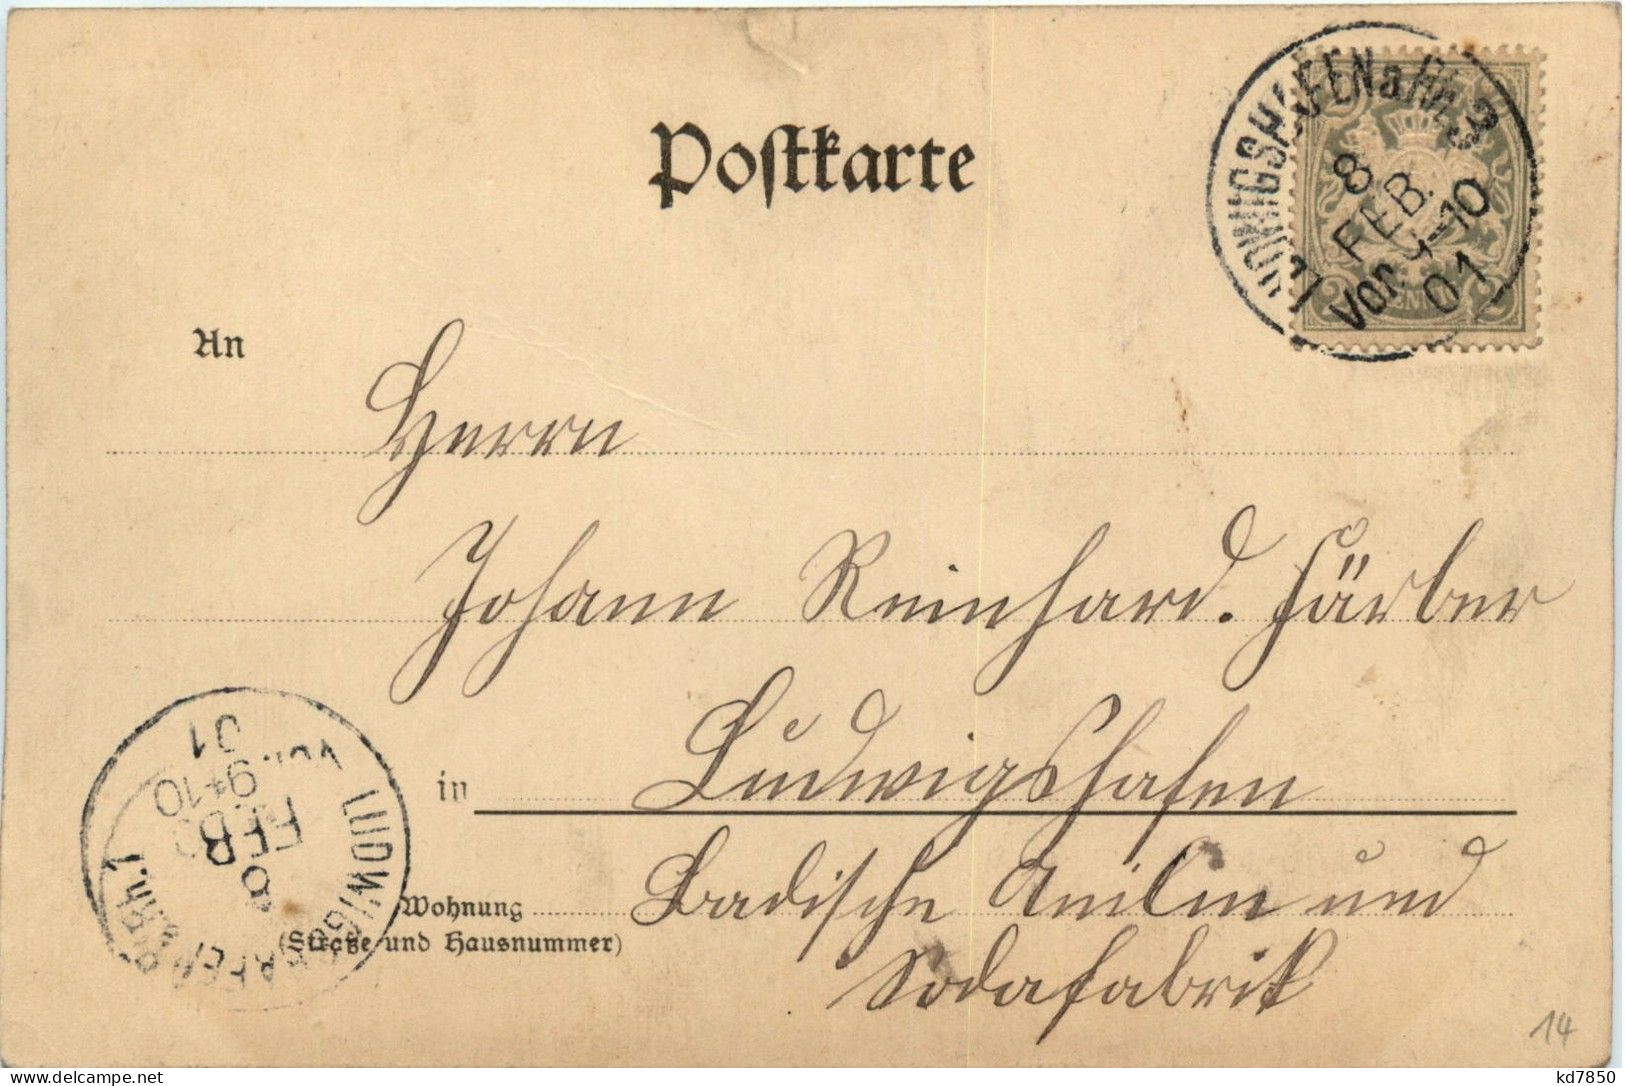 Postkarte
LUDWIGSHAFEN a. Rh. 3
8
FEB.
Vor. 9-10
01
PFENNIG
An
Herrn
Johann Reinhard. Färber
in Ludwigshafen
Wohnung Badische Anilin und
(Straße und Hausnummer)
Sodafabrik
LUDWIGSHAFEN a. Rh. 1
8
FEB
Vor. 9-10
01
14
delcampe.net
kd7850